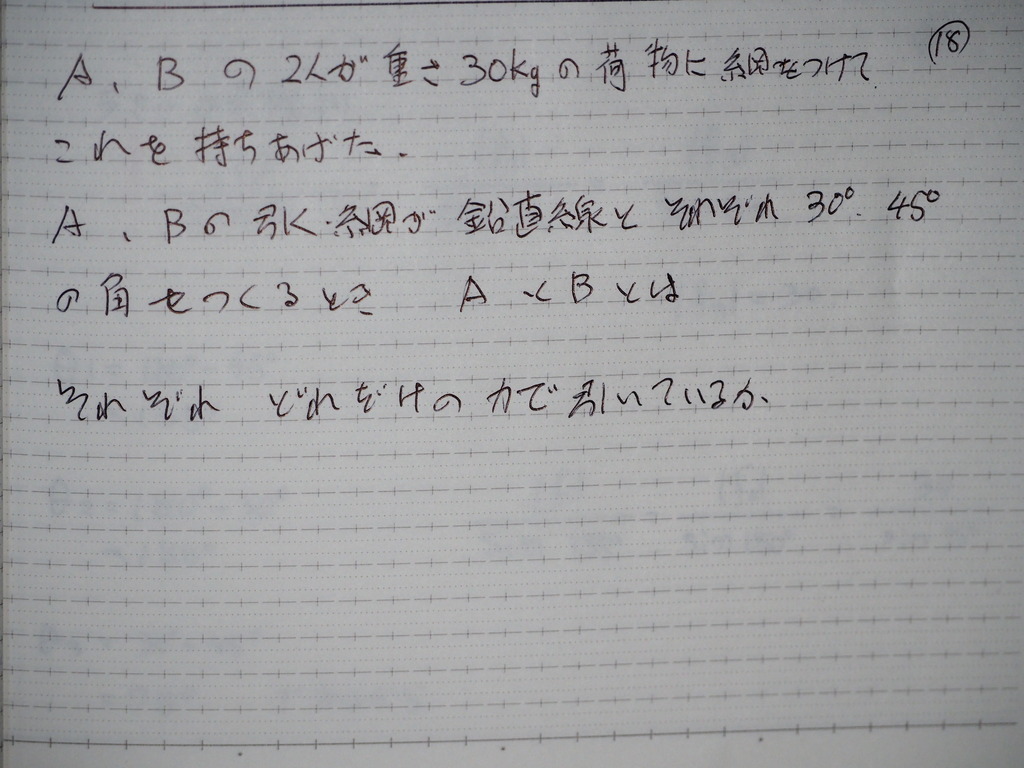 ⑱
A、Bの2人が重さ30kgの荷物に綱をつけて
これを持ちあげた.
A、Bの引く綱が鉛直線とそれぞれ30°.45°
の角をつくるとき AとBとは
それぞれ どれだけの力で引いているか、